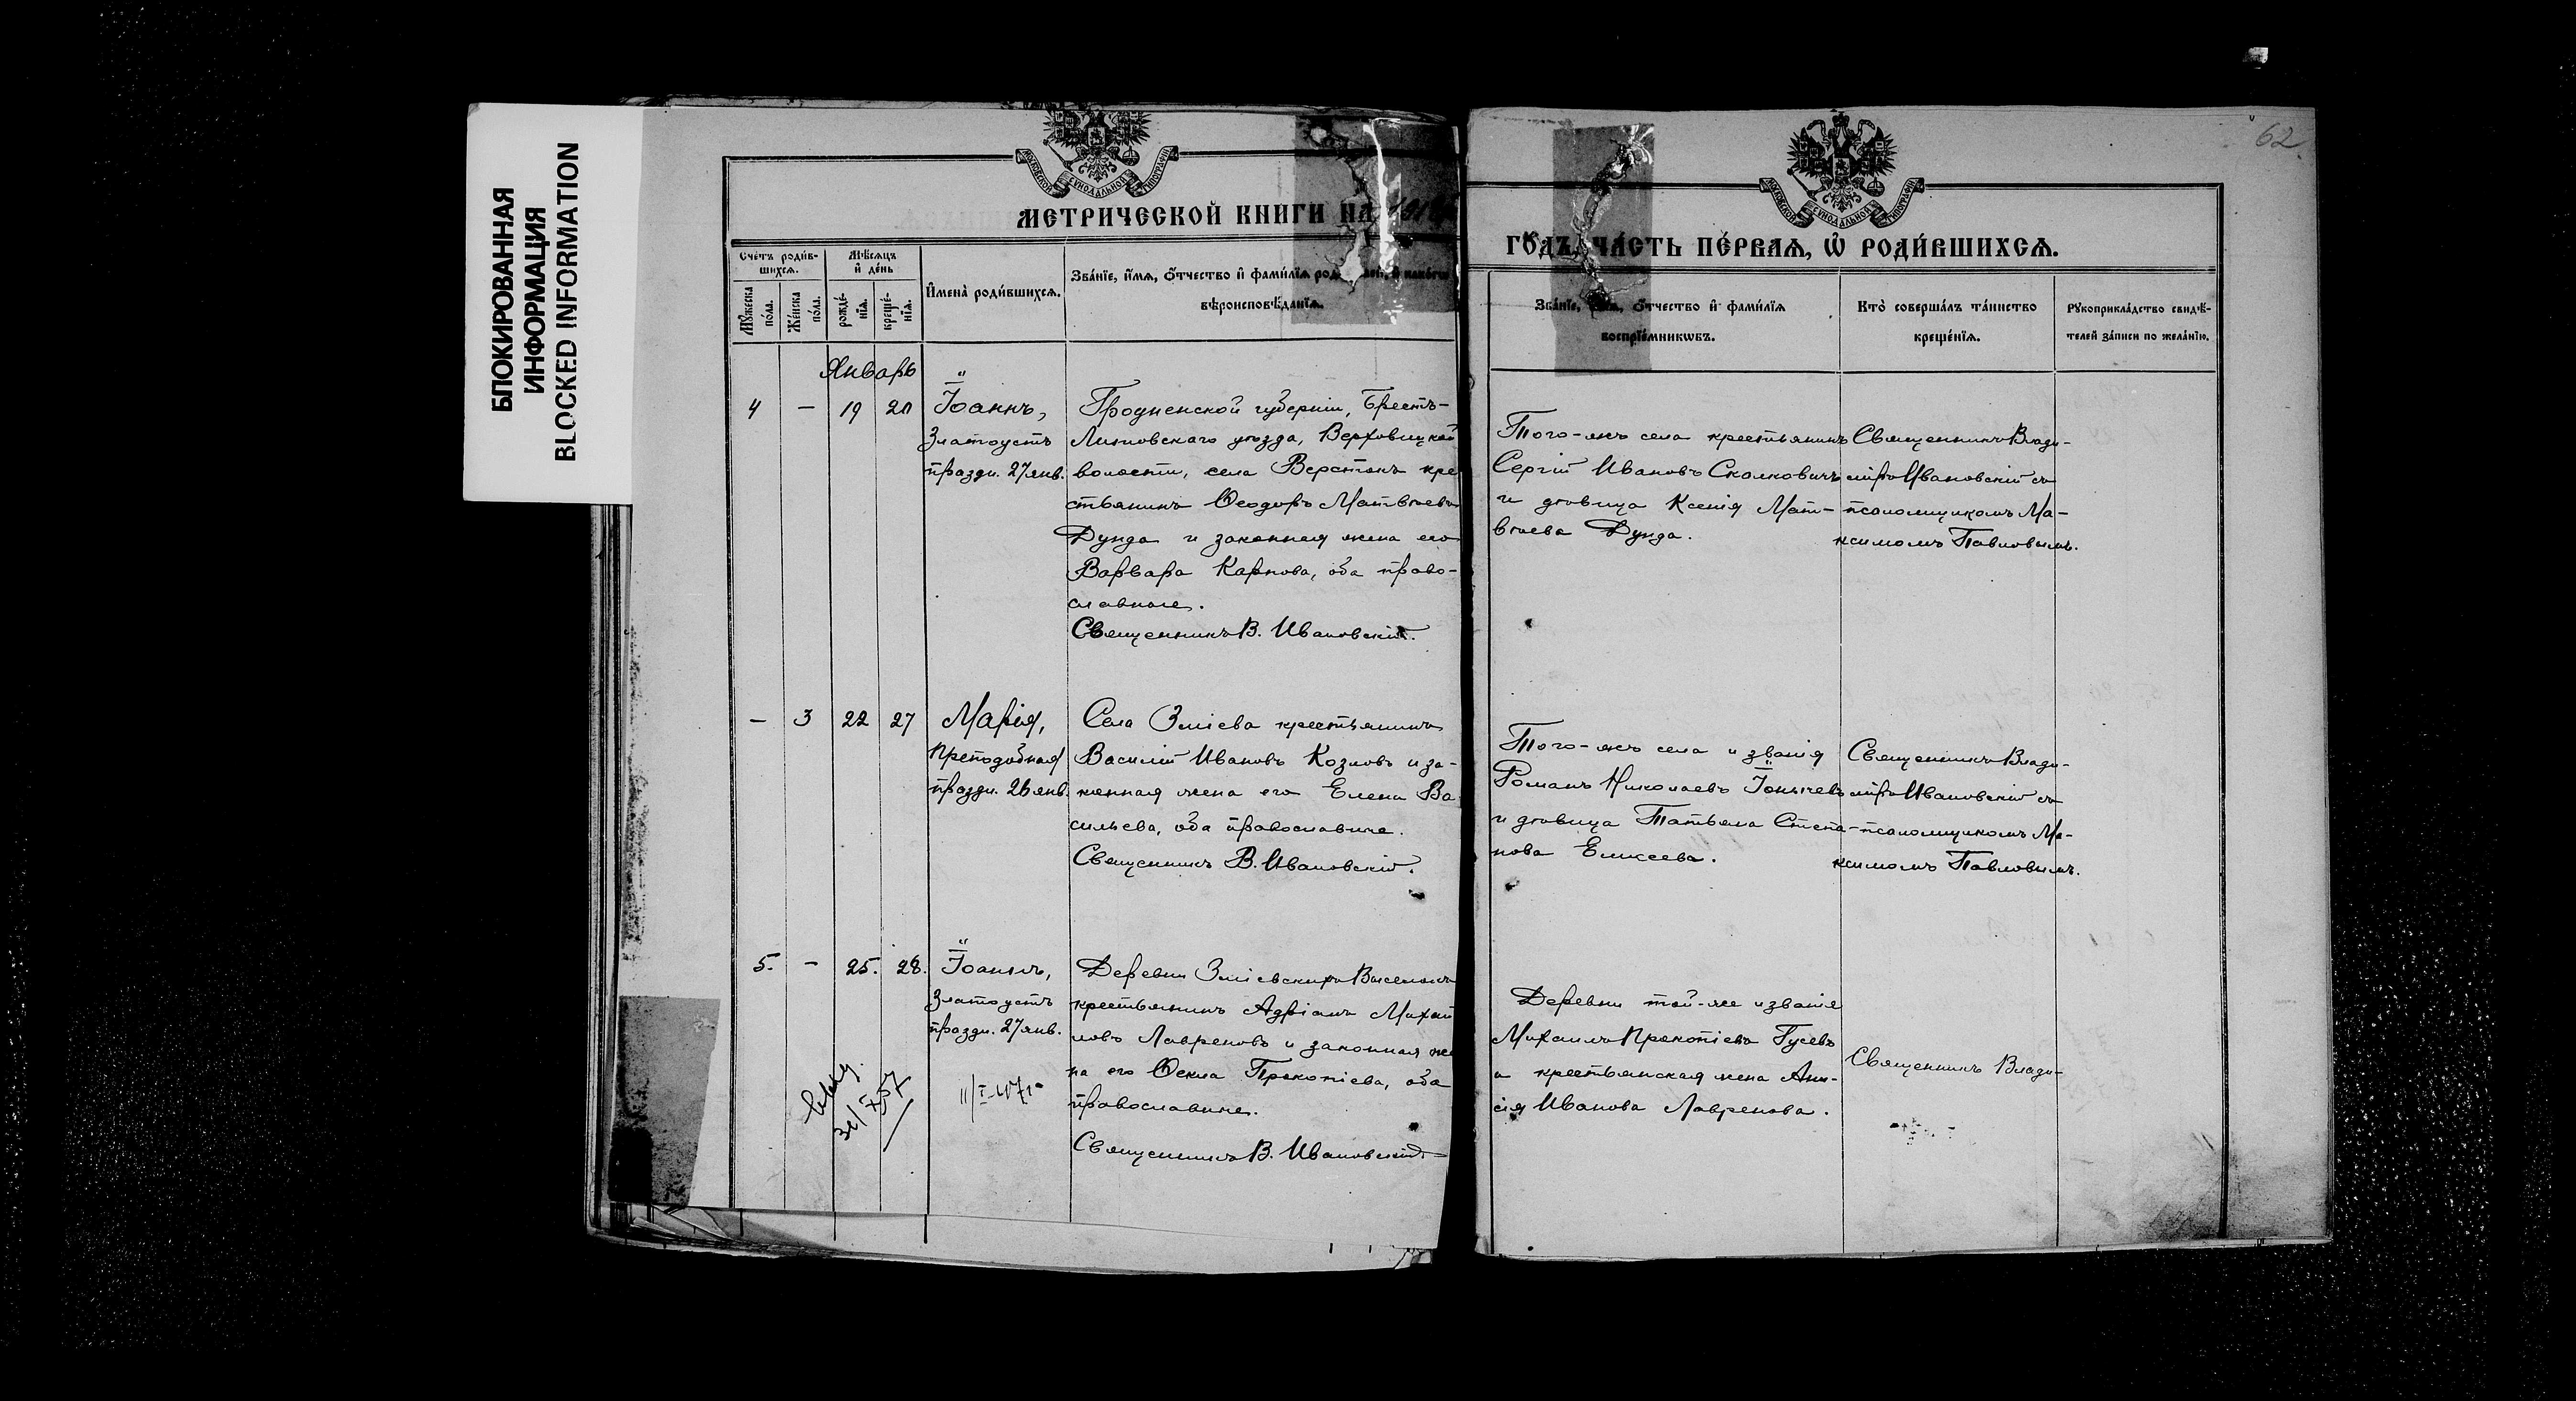 БЛОКИРОВАННАЯ
ИНФОРМАЦИЯ
BLOCKED INFORMATION
62
МОСКОВСКОЙ СѴНОДАЛЬНОЙ ТИПОГРАФІИ
МОСКОВСКОЙ СѴНОДАЛЬНОЙ ТИПОГРАФІИ
МЕТРИЧЕСКОЙ КНИГИ НА
ГОДЪ, ЧАСТЬ ПЕРВАЯ, Ѿ РОДИВШИХСЯ.
Счетъ родив-
шихся.
Мужеска
пола.
Женска
пола.
Мѣсяцъ
и день
рожде-
нія.
креще-
нія.
Имена родившихся.
Званіе, имя, отчество и фамилія
вѣроисповѣданія.
Званіе, отчество и фамилія
воспріемникѡвъ.
Кто совершалъ таинство
крещенія.
Рукоприкладство свидѣ-
телей записи по желанію.
Январь
4 — 19 20
Іоаннъ,
Златоустъ
праздн. 27 янв.
Гродненской губерніи, Брестъ-
Литовскаго уѣзда, Верховицкой
волости, села Верстокъ кре
стьянинъ Ѳеодоръ Матвѣевъ
Дунда и законная жена его
Варвара Карпова, оба право-
славные.
Священникъ В. Ивановскій.
Того-же села крестьянинъ
Сергій Ивановъ Скалковичъ
и дѣвица Ксенія Мат-
вѣева Дунда.
Священникъ Влади-
міръ Ивановскій съ
псаломщикомъ Ма-
ксимомъ Павловымъ.
— 3 22 27
Марія,
Преподобная
праздн. 26 янв.
Села Зміева крестьянинъ
Василій Ивановъ Козловъ и за-
конная жена его Елена Ва
сильева, оба православные.
Священникъ В. Ивановскій.
Того-же села и званія
Романъ Николаевъ
и дѣвица Татьяна Степа-
нова Елисеева.
Священникъ Влади-
міръ Ивановскій съ
псаломщикомъ Ма-
ксимомъ Павловымъ.
5. — 25. 28.
Іоаннъ,
Златоустъ
праздн. 27 янв.
Деревни Зміевскихъ Выселокъ
крестьянинъ Адріанъ Михай
ловъ Лавреновъ и законная же
на его Ѳекла Прокопіева, оба
православные.
Священникъ В. Ивановскій
Деревни той-же и званія
Михаилъ Прокопіевъ Гусевъ
и крестьянская жена Ани-
сія Иванова Лавренова.
Священникъ Влади-